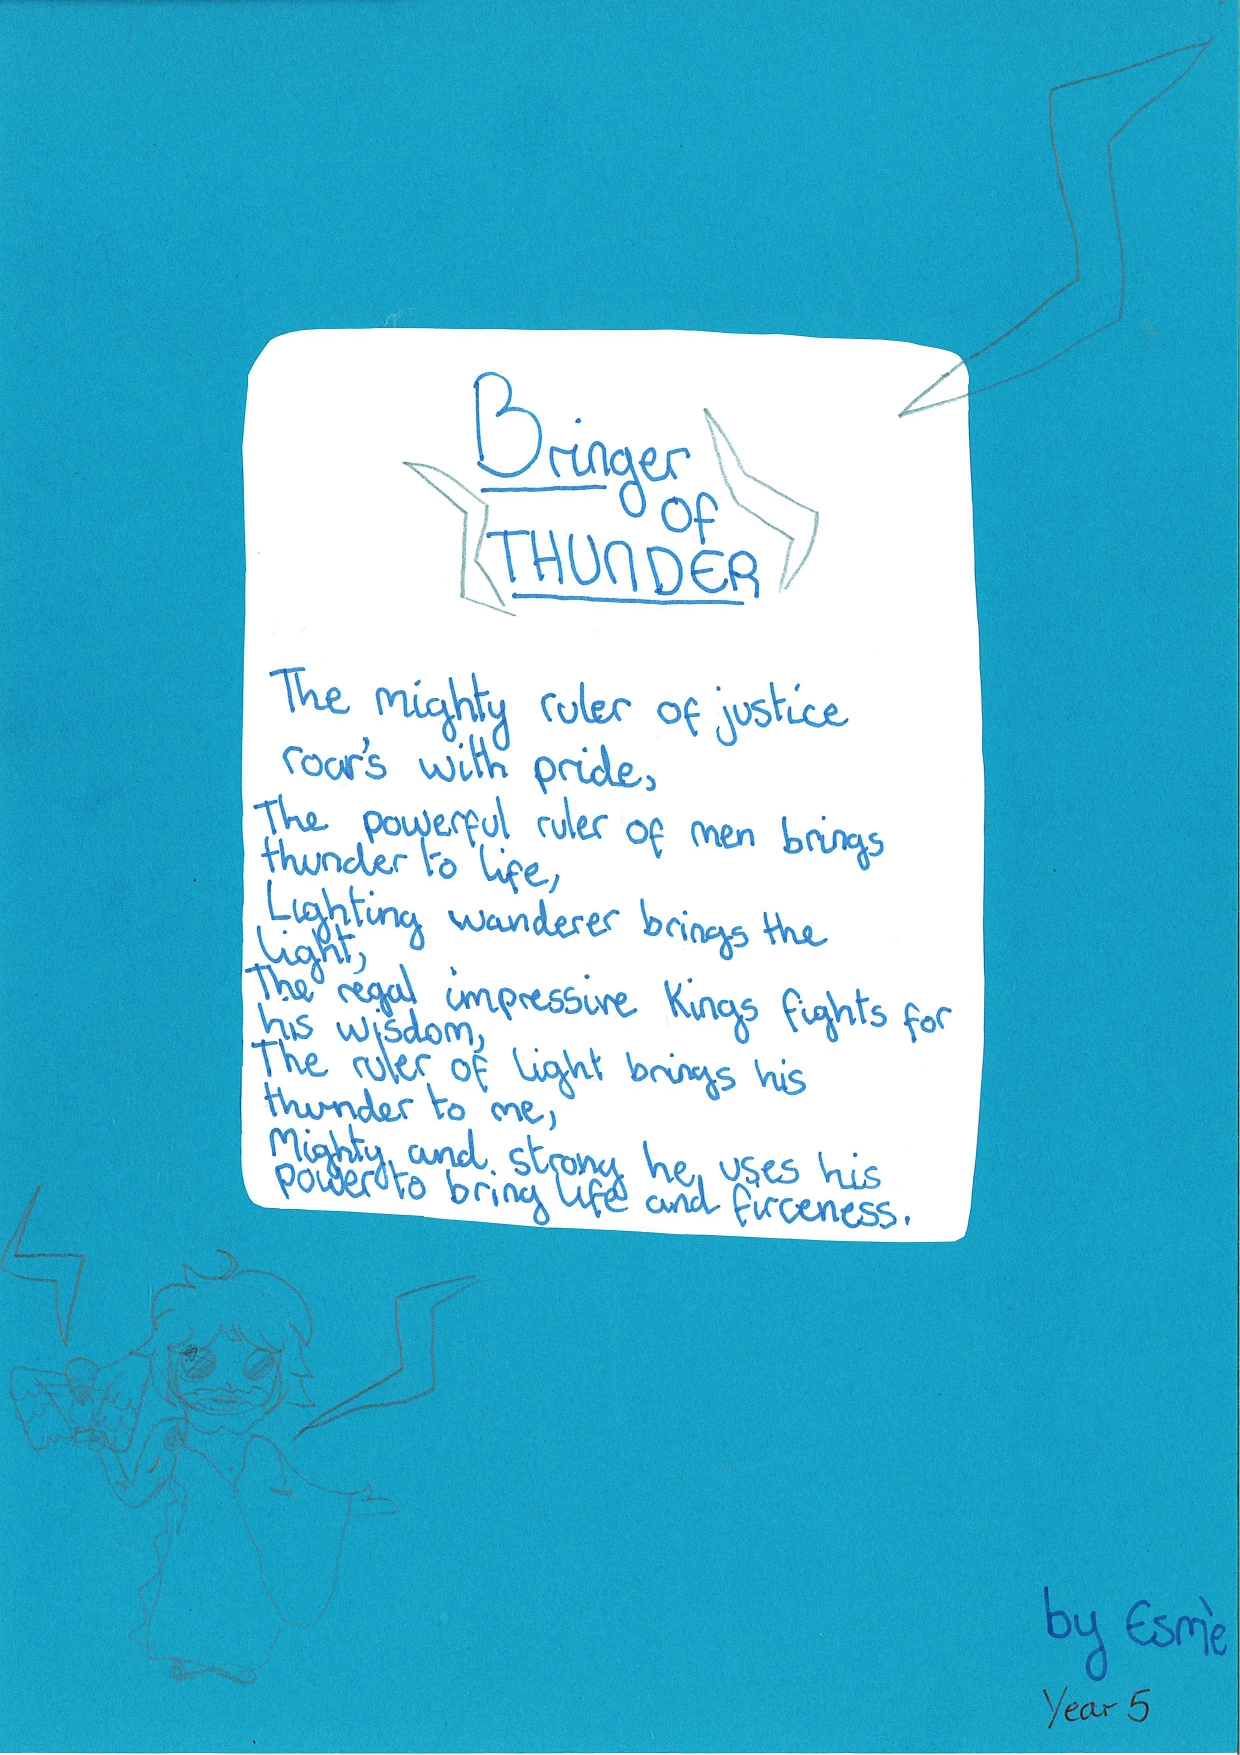 Bringer
of
THUNDER
The mighty ruler of justice
roar's with pride,
The powerful ruler of men brings
thunder to life,
Lighting wanderer brings the
light,
The regal impressive Kings fights for
his wisdom,
The ruler of light brings his
thunder to me,
Mighty and strong he uses his
power to bring life and firceness.
by Esmè
Year 5